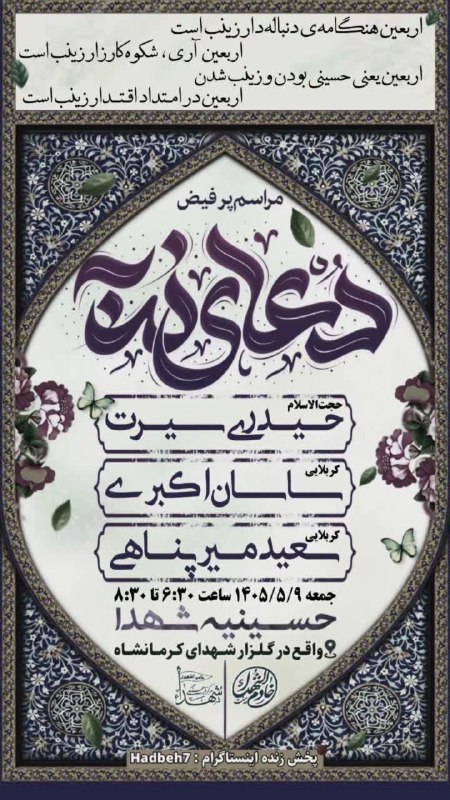 اربعین هنگامه‌ی دنباله‌دار زینب است
اربعین آری، شکوه کارزار زینب است
اربعین یعنی حسینی بودن و زینب شدن
اربعین در امتداد اقتدار زینب است
مراسم پر فیض
دعای ندبه
حجت‌الاسلام
حیدری سیرت
کربلایی
ساسان اکبری
کربلایی
سعید میرپناهی
جمعه ۱۴۰۵/۵/۹ ساعت ۶:۳۰ تا ۸:۳۰
حسینیه شهدا
واقع در گلزار شهدای کرمانشاه
پخش زنده اینستاگرام : Hadbeh7